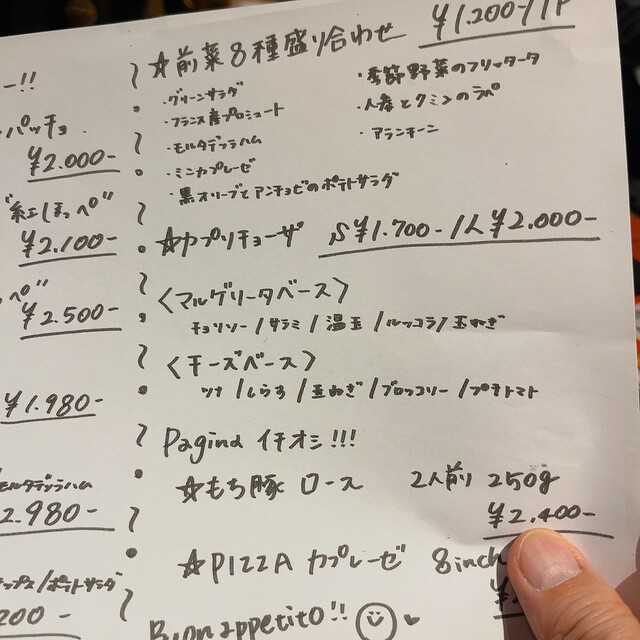 ー!!
パッチョ
¥2.000-
"紅しほっぺ"
¥2.100-
っぺ"
¥2.500-
¥1.980-
モルタデッラハム
2.980-
チップス/ポテトサラダ
200-
☆前菜8種盛り合わせ ¥1.200-/1P
・グリーンサラダ
・フランス産プロシュート
・モルタデッラハム
・ミニカプレーゼ
・黒オリーブとアンチョビのポテトサラダ
・季節野菜のフリッタータ
・人参とクミンのラペ
・アランチーニ
☆カプリチョーザ S¥1.700-/L¥2.000-
〈マルゲリータベース〉
チョリソー/サラミ/温玉/ルッコラ/玉ねぎ
〈チーズベース〉
ツナ/しらす/玉ねぎ/ブロッコリー/プチトマト
Pagina イチオシ!!!
☆もち豚 ロース 2人前 250g
¥2.400-
☆PIZZA カプレーゼ 8inch
Buon appetito!!